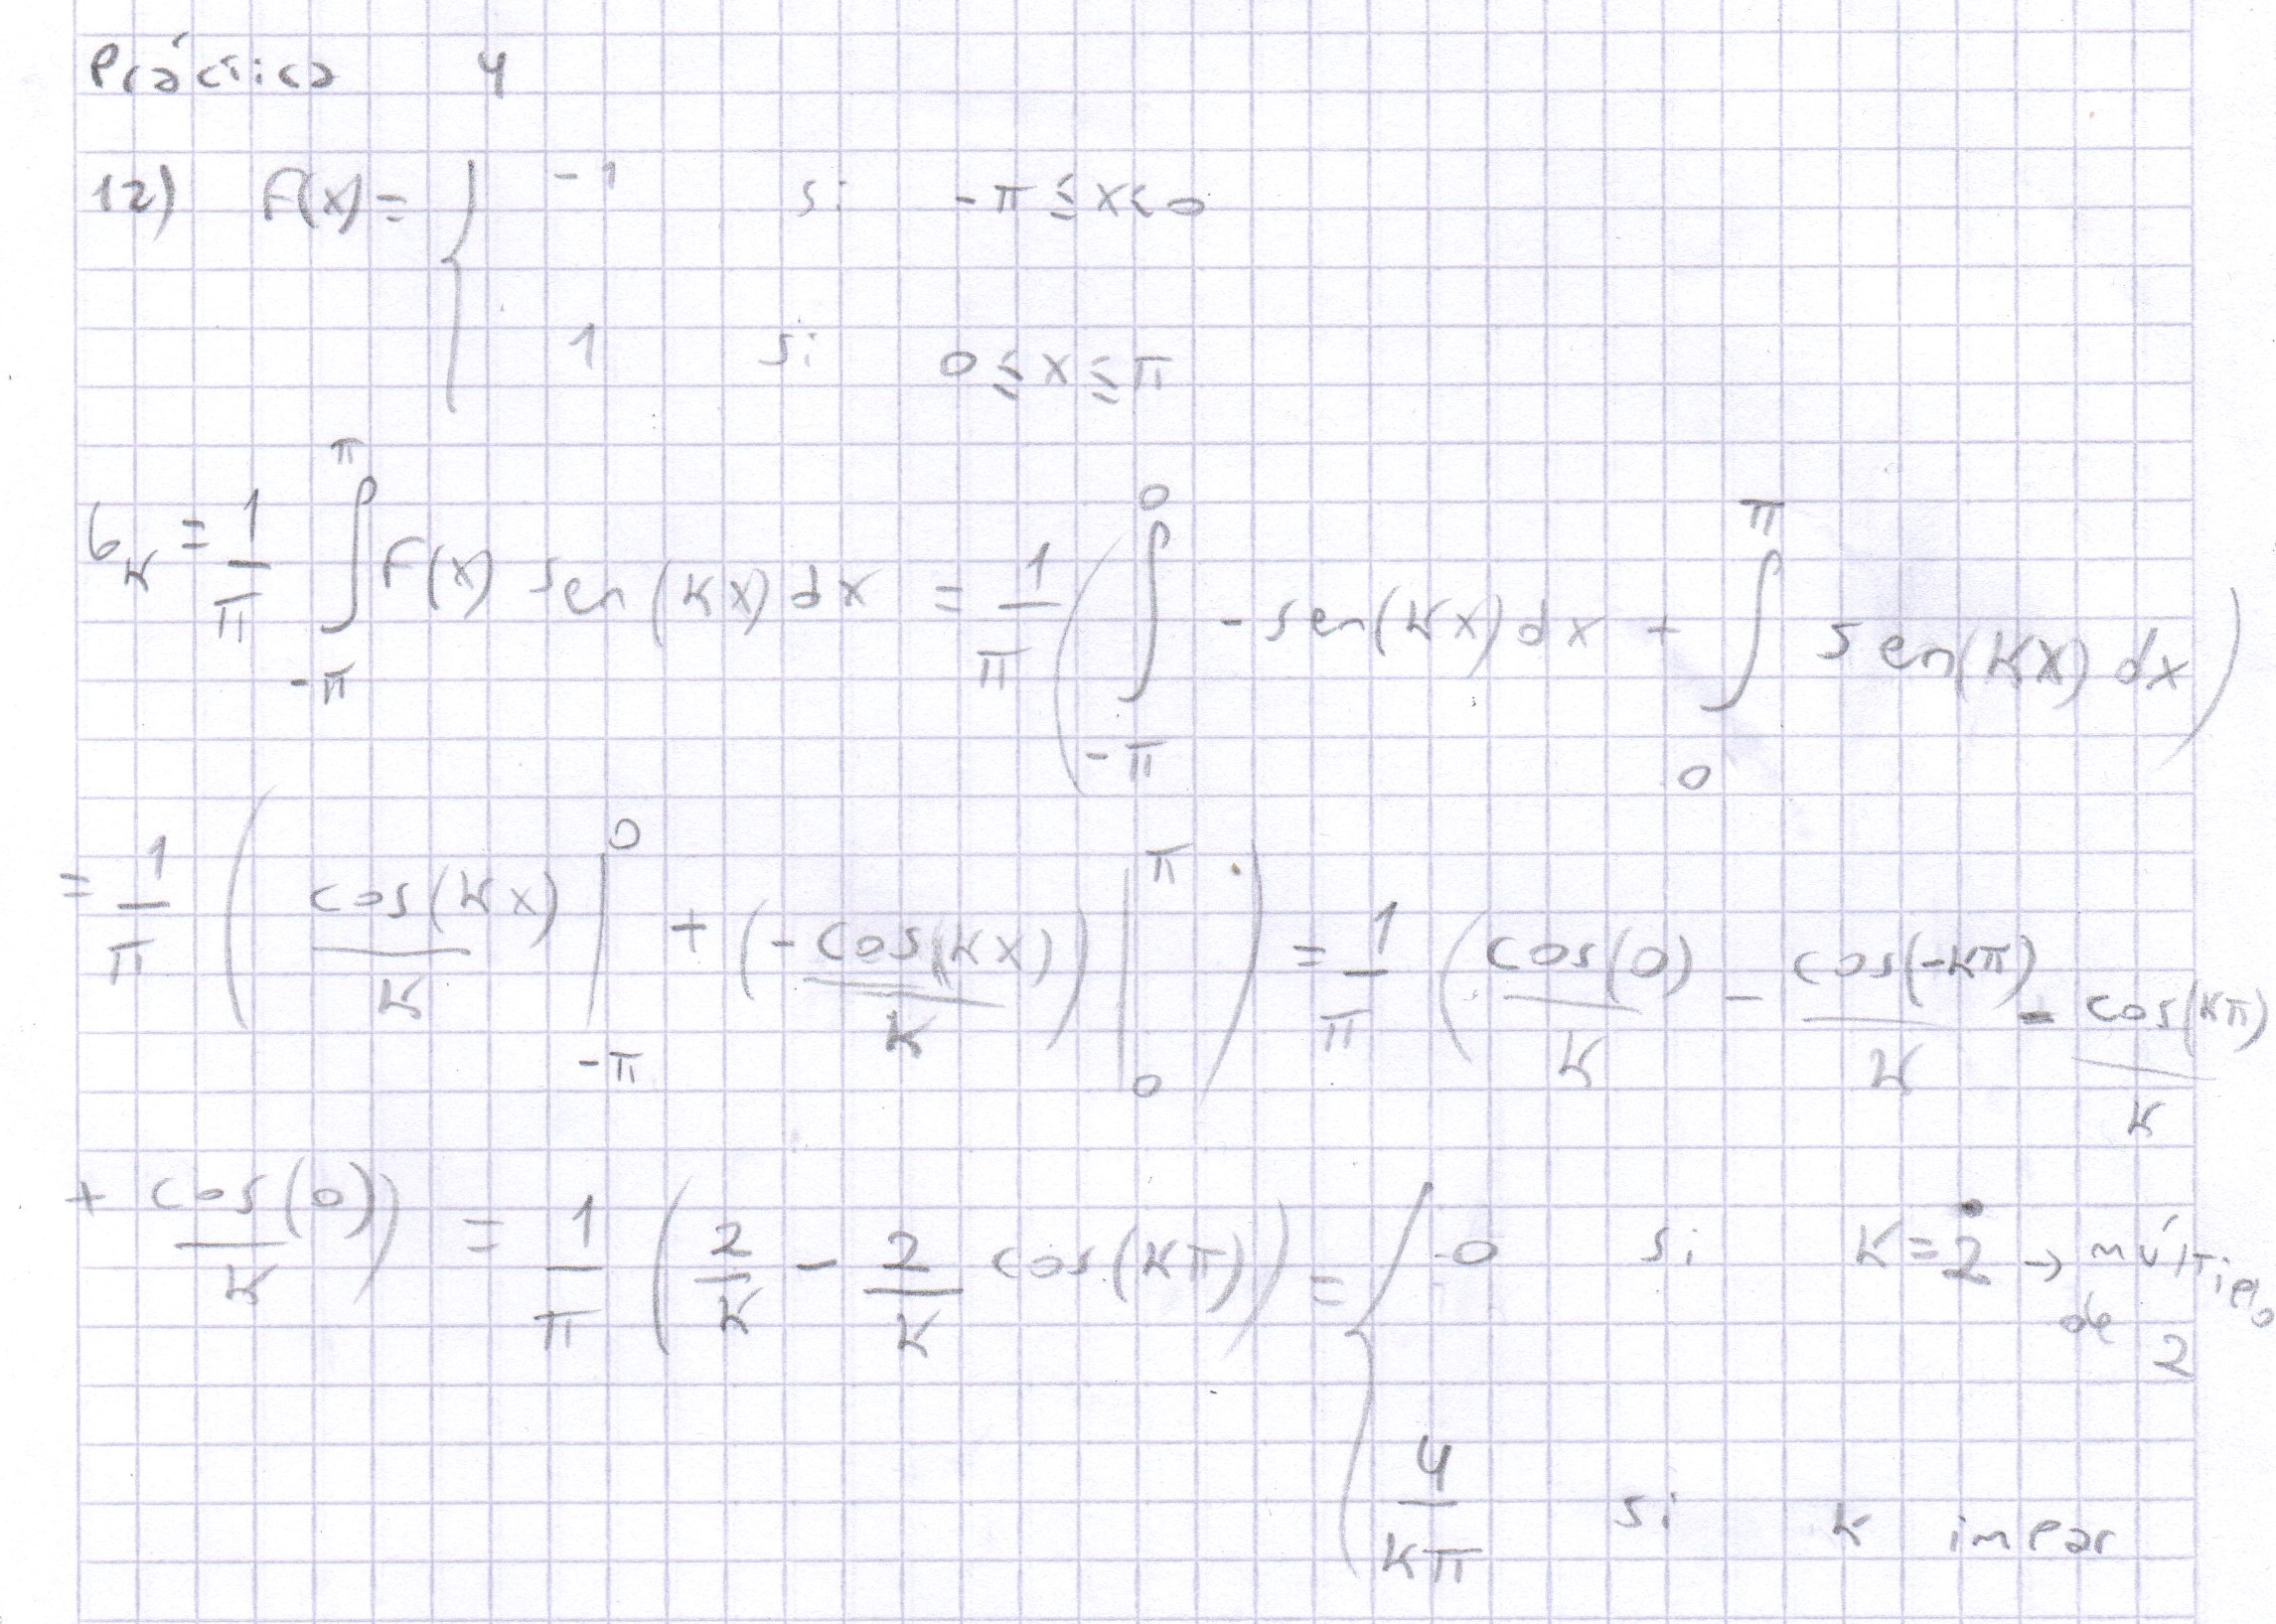 Práctica 4
12) F(x) = { -1 si -π ≤ x < 0
1 si 0 ≤ x ≤ π
b_k = 1/π ∫_{-π}^{π} F(x) sen(kx) dx = 1/π ( ∫_{-π}^{0} -sen(kx) dx + ∫_{0}^{π} sen(kx) dx )
= 1/π ( cos(kx)/k |_{-π}^{0} + (-cos(kx)/k) |_{0}^{π} ) = 1/π ( cos(0)/k - cos(-kπ)/k - cos(kπ)/k
+ cos(0)/k ) = 1/π ( 2/k - 2/k cos(kπ) ) = { 0 si k = 2̇ → múltiplo de 2
4/kπ si k impar